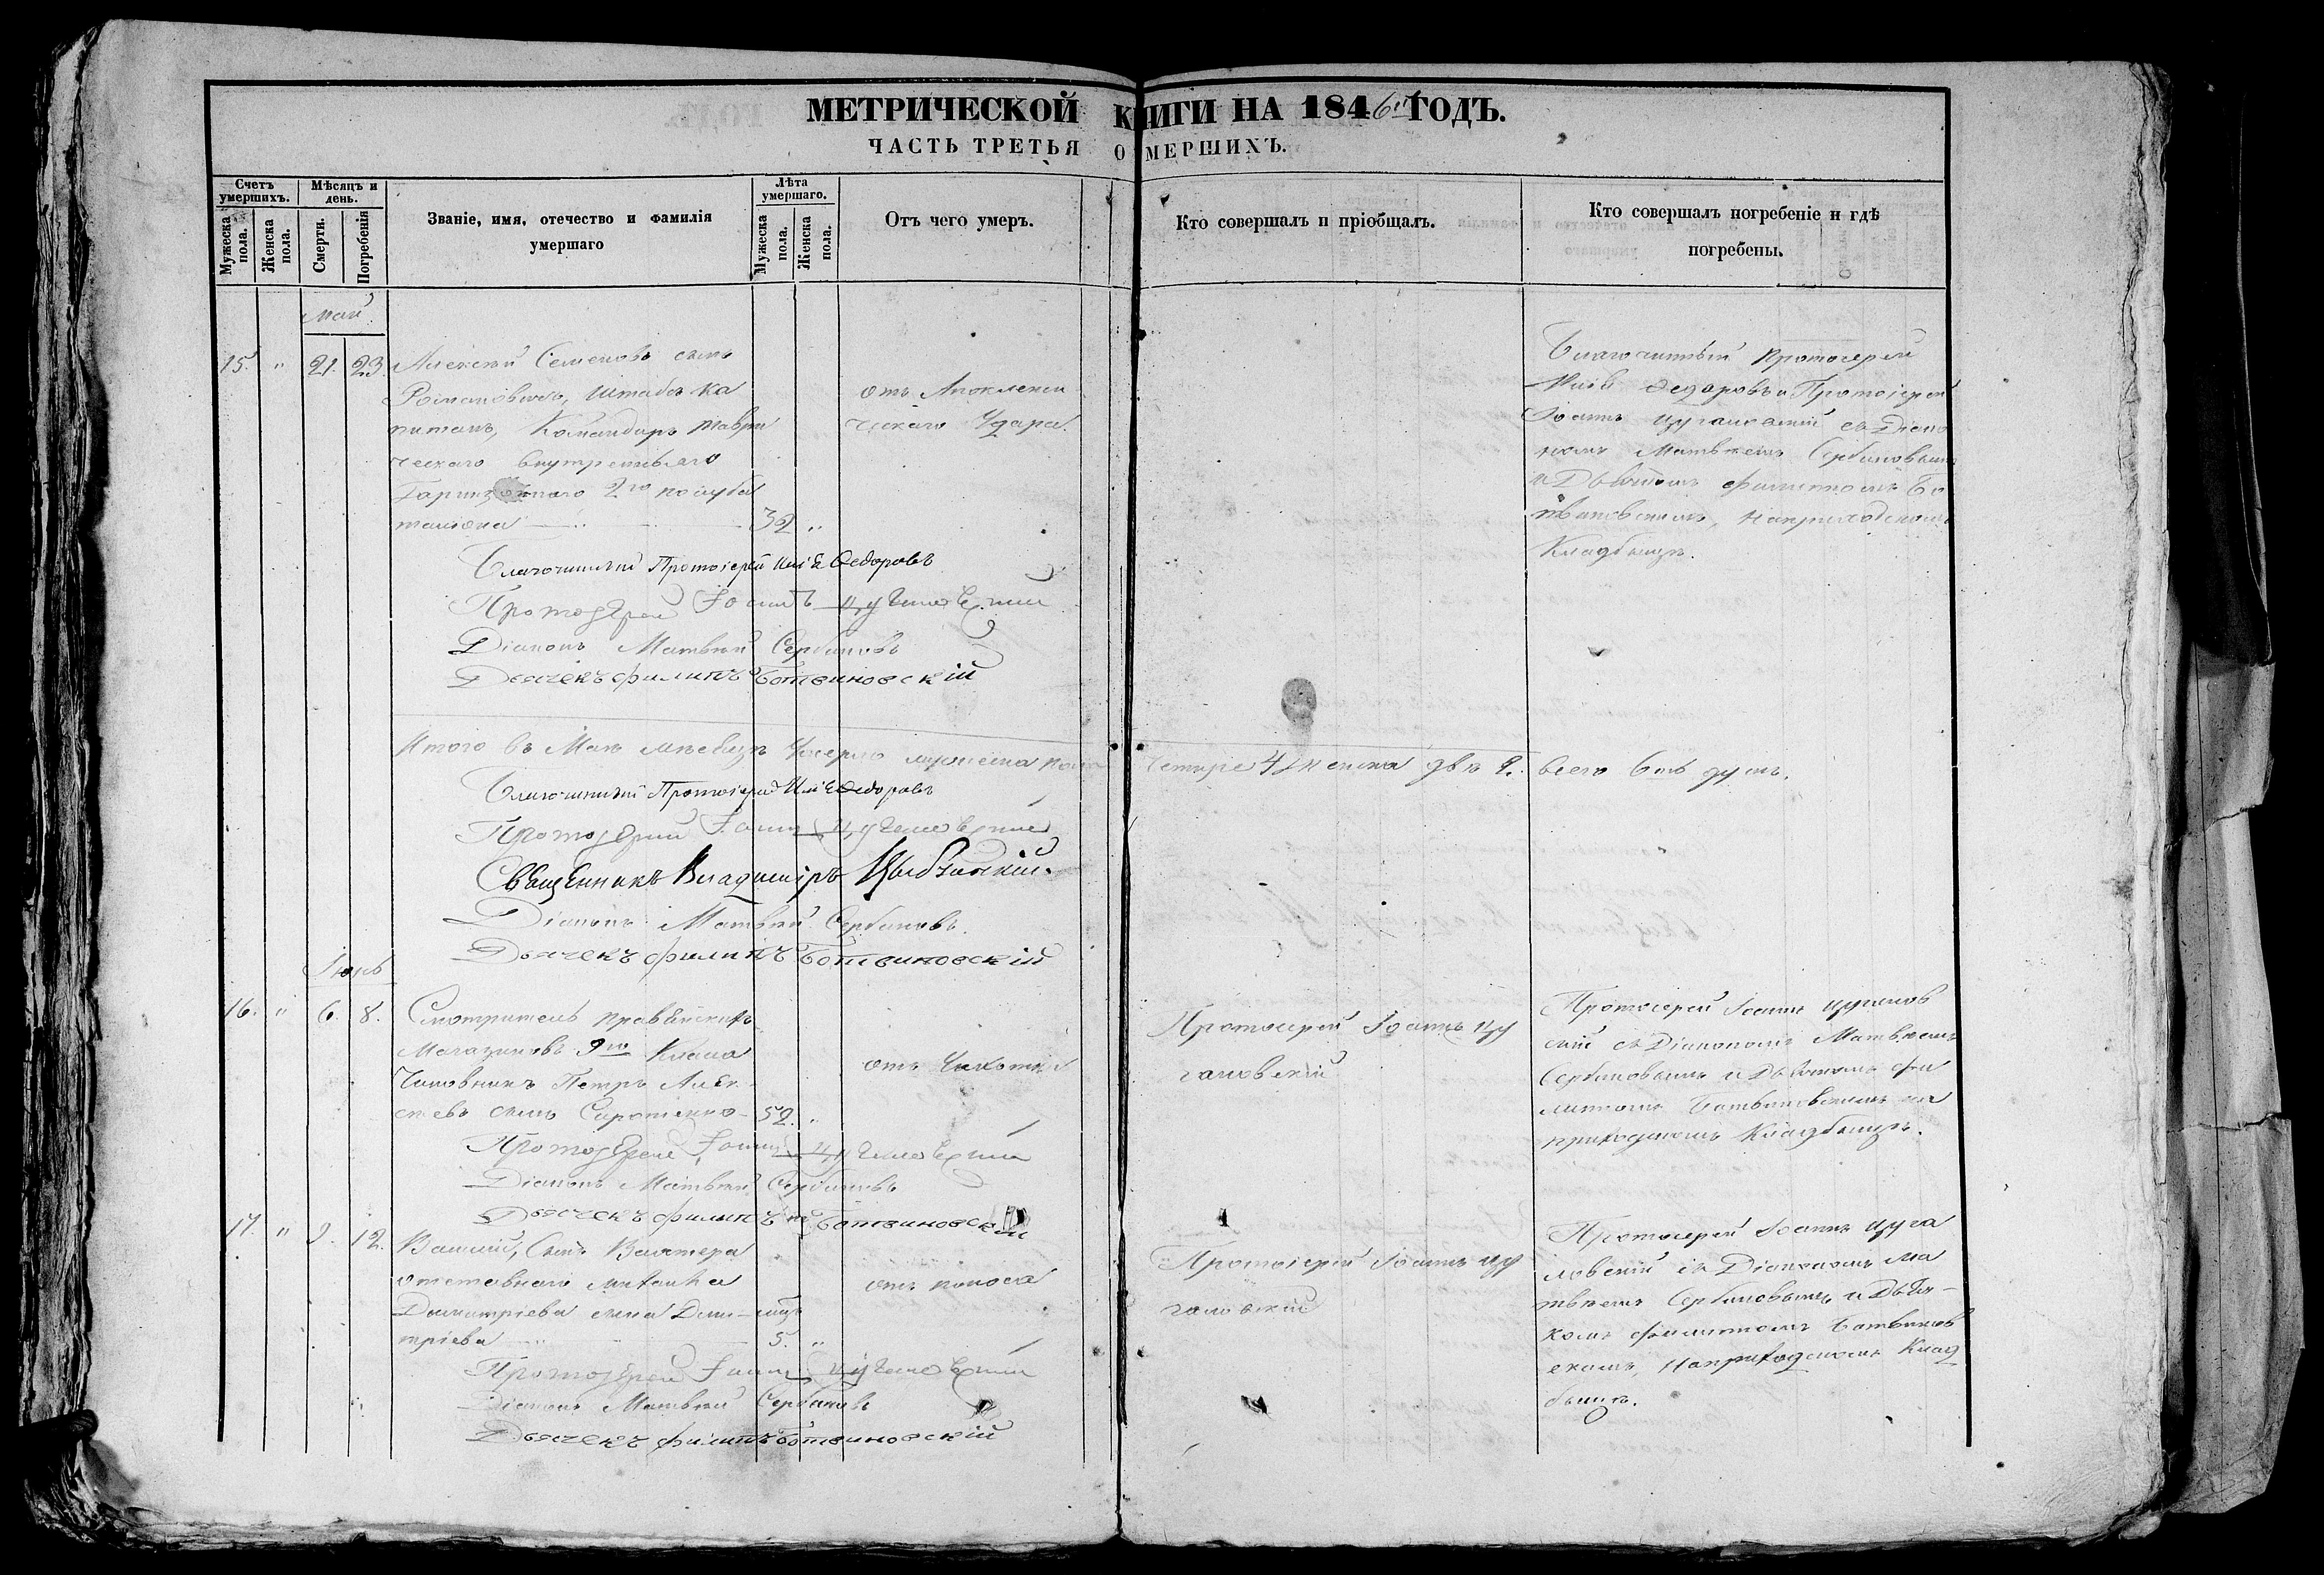 МЕТРИЧЕСКОЙ КНИГИ НА 1846й ГОДЪ.
ЧАСТЬ ТРЕТЬЯ О МЕРШИХЪ.
Счетъ умершихъ.
Мужеска пола.
Женска пола.
Мѣсяцъ и день.
Смерти.
Погребенія
Званіе, имя, отечество и фамилія
умершаго
Лѣта умершаго.
Мужеска пола.
Женска пола.
Отъ чего умеръ.
Кто совершалъ и пріобщалъ.
Кто совершалъ погребеніе и гдѣ
погребены.
Май
15. " 21. 23.
Алексѣй Семеновъ сынъ
Романовичъ, Штабсъ Ка
питанъ, Командиръ Таври
ческаго внутренняго
Гарнизоннаго 2го полуба
таліона 32 "
отъ Апоплекси
ческаго Удара.
Благочинный Протоіерей
Федоровъ и Протоіерей
Іоаннъ Цугаловскій съ Діако
номъ Матвѣемъ Сербиновымъ
и Дьячкомъ Филиппомъ Бо
твиновскимъ, На приходскомъ
Кладбищѣ.
Благочинный Протоіерей Федоровъ
Протоіерей Іоаннъ Цугаловскій
Діаконъ Матвѣй Сербиновъ
Дьячекъ Филипъ Ботвиновскій
Итого въ Маѣ мѣсяцѣ умерло мужеска пола
четыре 4 Женска двѣ 2. всего 6ть душъ.
Благочинный Протоіерей Федоровъ
Протоіерей Іоаннъ Цугаловскій
Священникъ Владиміръ
Діаконъ Матвѣй Сербиновъ.
Дьячекъ Филипъ Ботвиновскій
Іюнь
16. " 6. 8.
Смотритель Правіянскихъ
Магазиновъ 9го Класа
Чиновникъ Петръ Алек
сѣевъ сынъ Сиротенко 52. "
отъ Чихотки
Протоіерей Іоаннъ Цу
галовскій
Протоіерей Іоаннъ Цугалов
скій съ Діакономъ Матвѣемъ
Сербиновымъ и Дьячкомъ Фи
липпомъ Ботвиновскимъ на
приходскомъ Кладбищѣ.
Протоіерей Іоаннъ Цугаловскій
Діаконъ Матвѣй Сербиновъ
Дьячекъ Филипъ Ботвиновскій
17. " 9. 12.
Василій, Сынъ Вахтера
отставнаго
Димитріева сына Дими-
тріева 5. "
отъ поноса
Протоіерей Іоаннъ Цу
галовскій
Протоіерей Іоаннъ Цуга
ловскій съ Діакономъ Ма
твѣемъ Сербиновымъ и Дьяч-
комъ Филиппомъ Ботвинов
скимъ, На приходскомъ Клад
бищѣ.
Протоіерей Іоаннъ Цугаловскій
Діаконъ Матвѣй Сербиновъ
Дьячекъ Филипъ Ботвиновскій